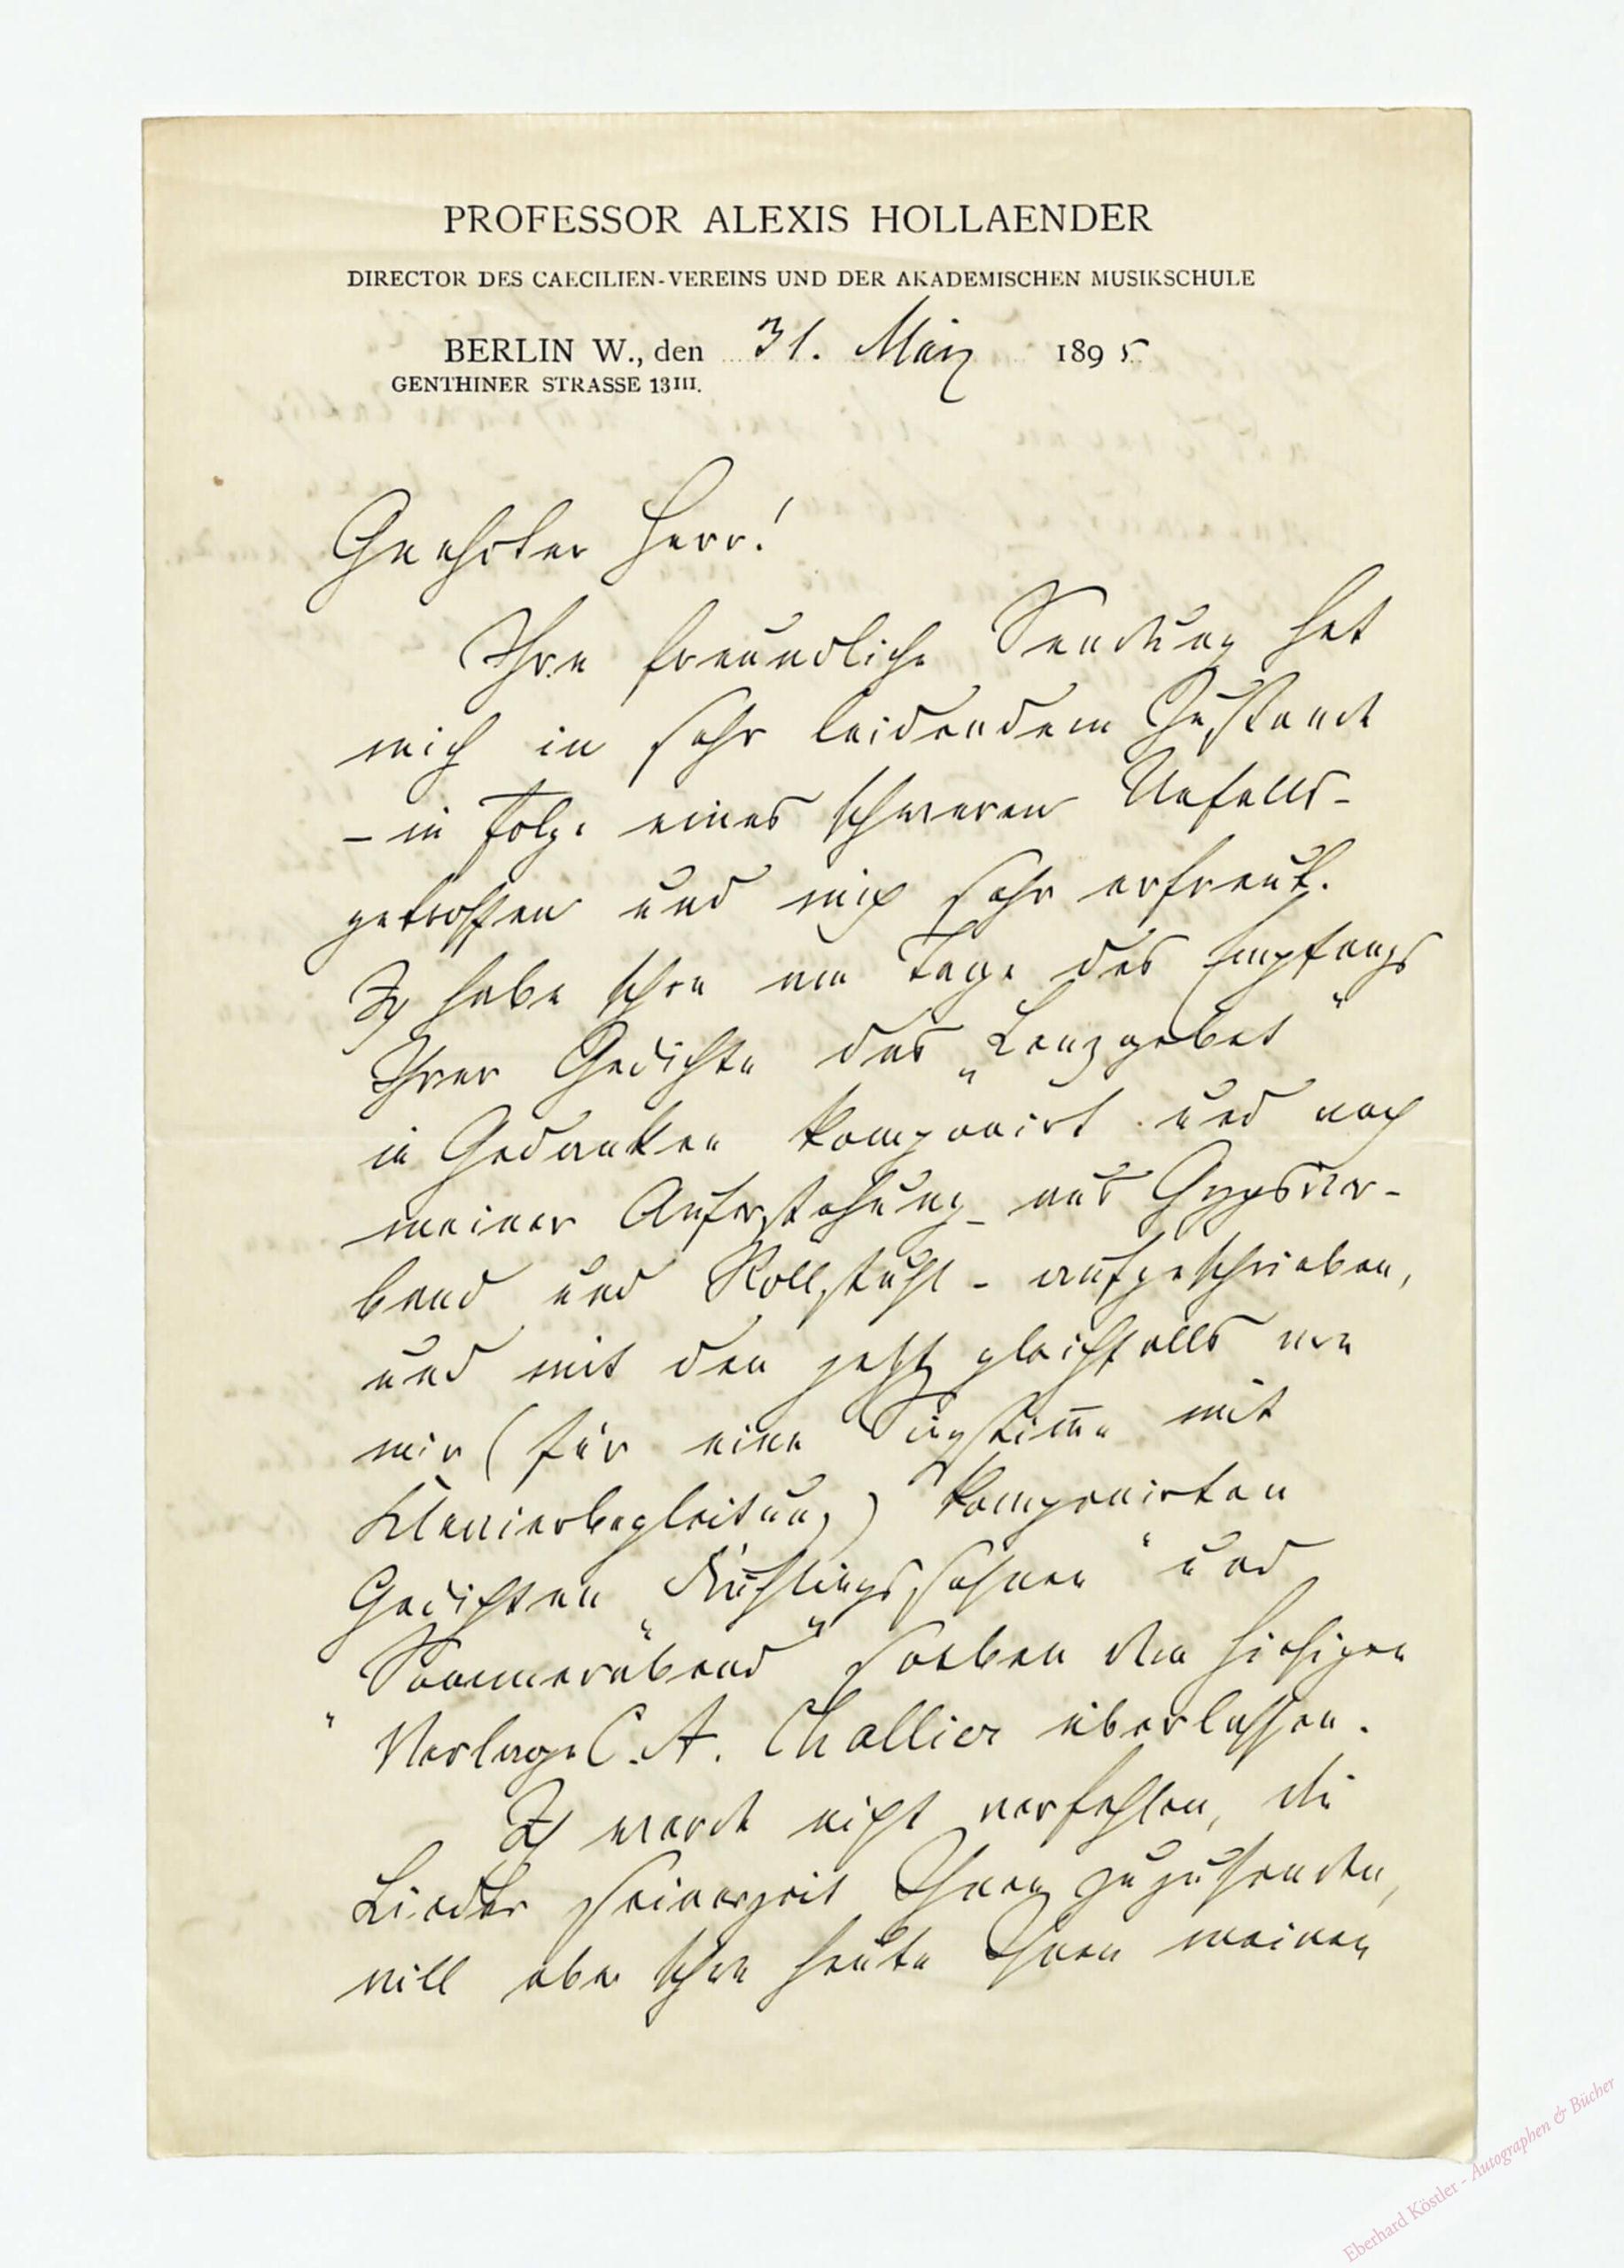 PROFESSOR ALEXIS HOLLAENDER
DIRECTOR DES CAECILIEN-VEREINS UND DER AKADEMISCHEN MUSIKSCHULE
BERLIN W., den 31. März 1895
GENTHINER STRASSE 13III.
Geehrter Herr!
Ihre freundliche Sendung hat
mich in sehr leidendem Zustande
– in Folge eines schweren Unfalls –
getroffen und mich sehr erfreut.
Ich habe schon am Tage des Empfangs
Ihrer Gedichte das „Lenzgebet“
in Gedanken komponirt und nach
meiner Auferstehung – aus Gypsver-
band und Rollstuhl – aufgeschrieben,
und mit den jetzt gleichfalls von
mir (für eine Singstimme mit
Klavierbegleitung) komponirten
Gedichten „Frühlingssehnen“ und
„Sommerabend“ soeben dem hiesigen
Verlage C. A. Challier überlassen.
Ich werde nicht verfehlen, die
Lieder seinerzeit Ihnen zuzusenden,
will aber schon heute Ihnen meinen
Eberhard Köstler - Autographen & Bücher